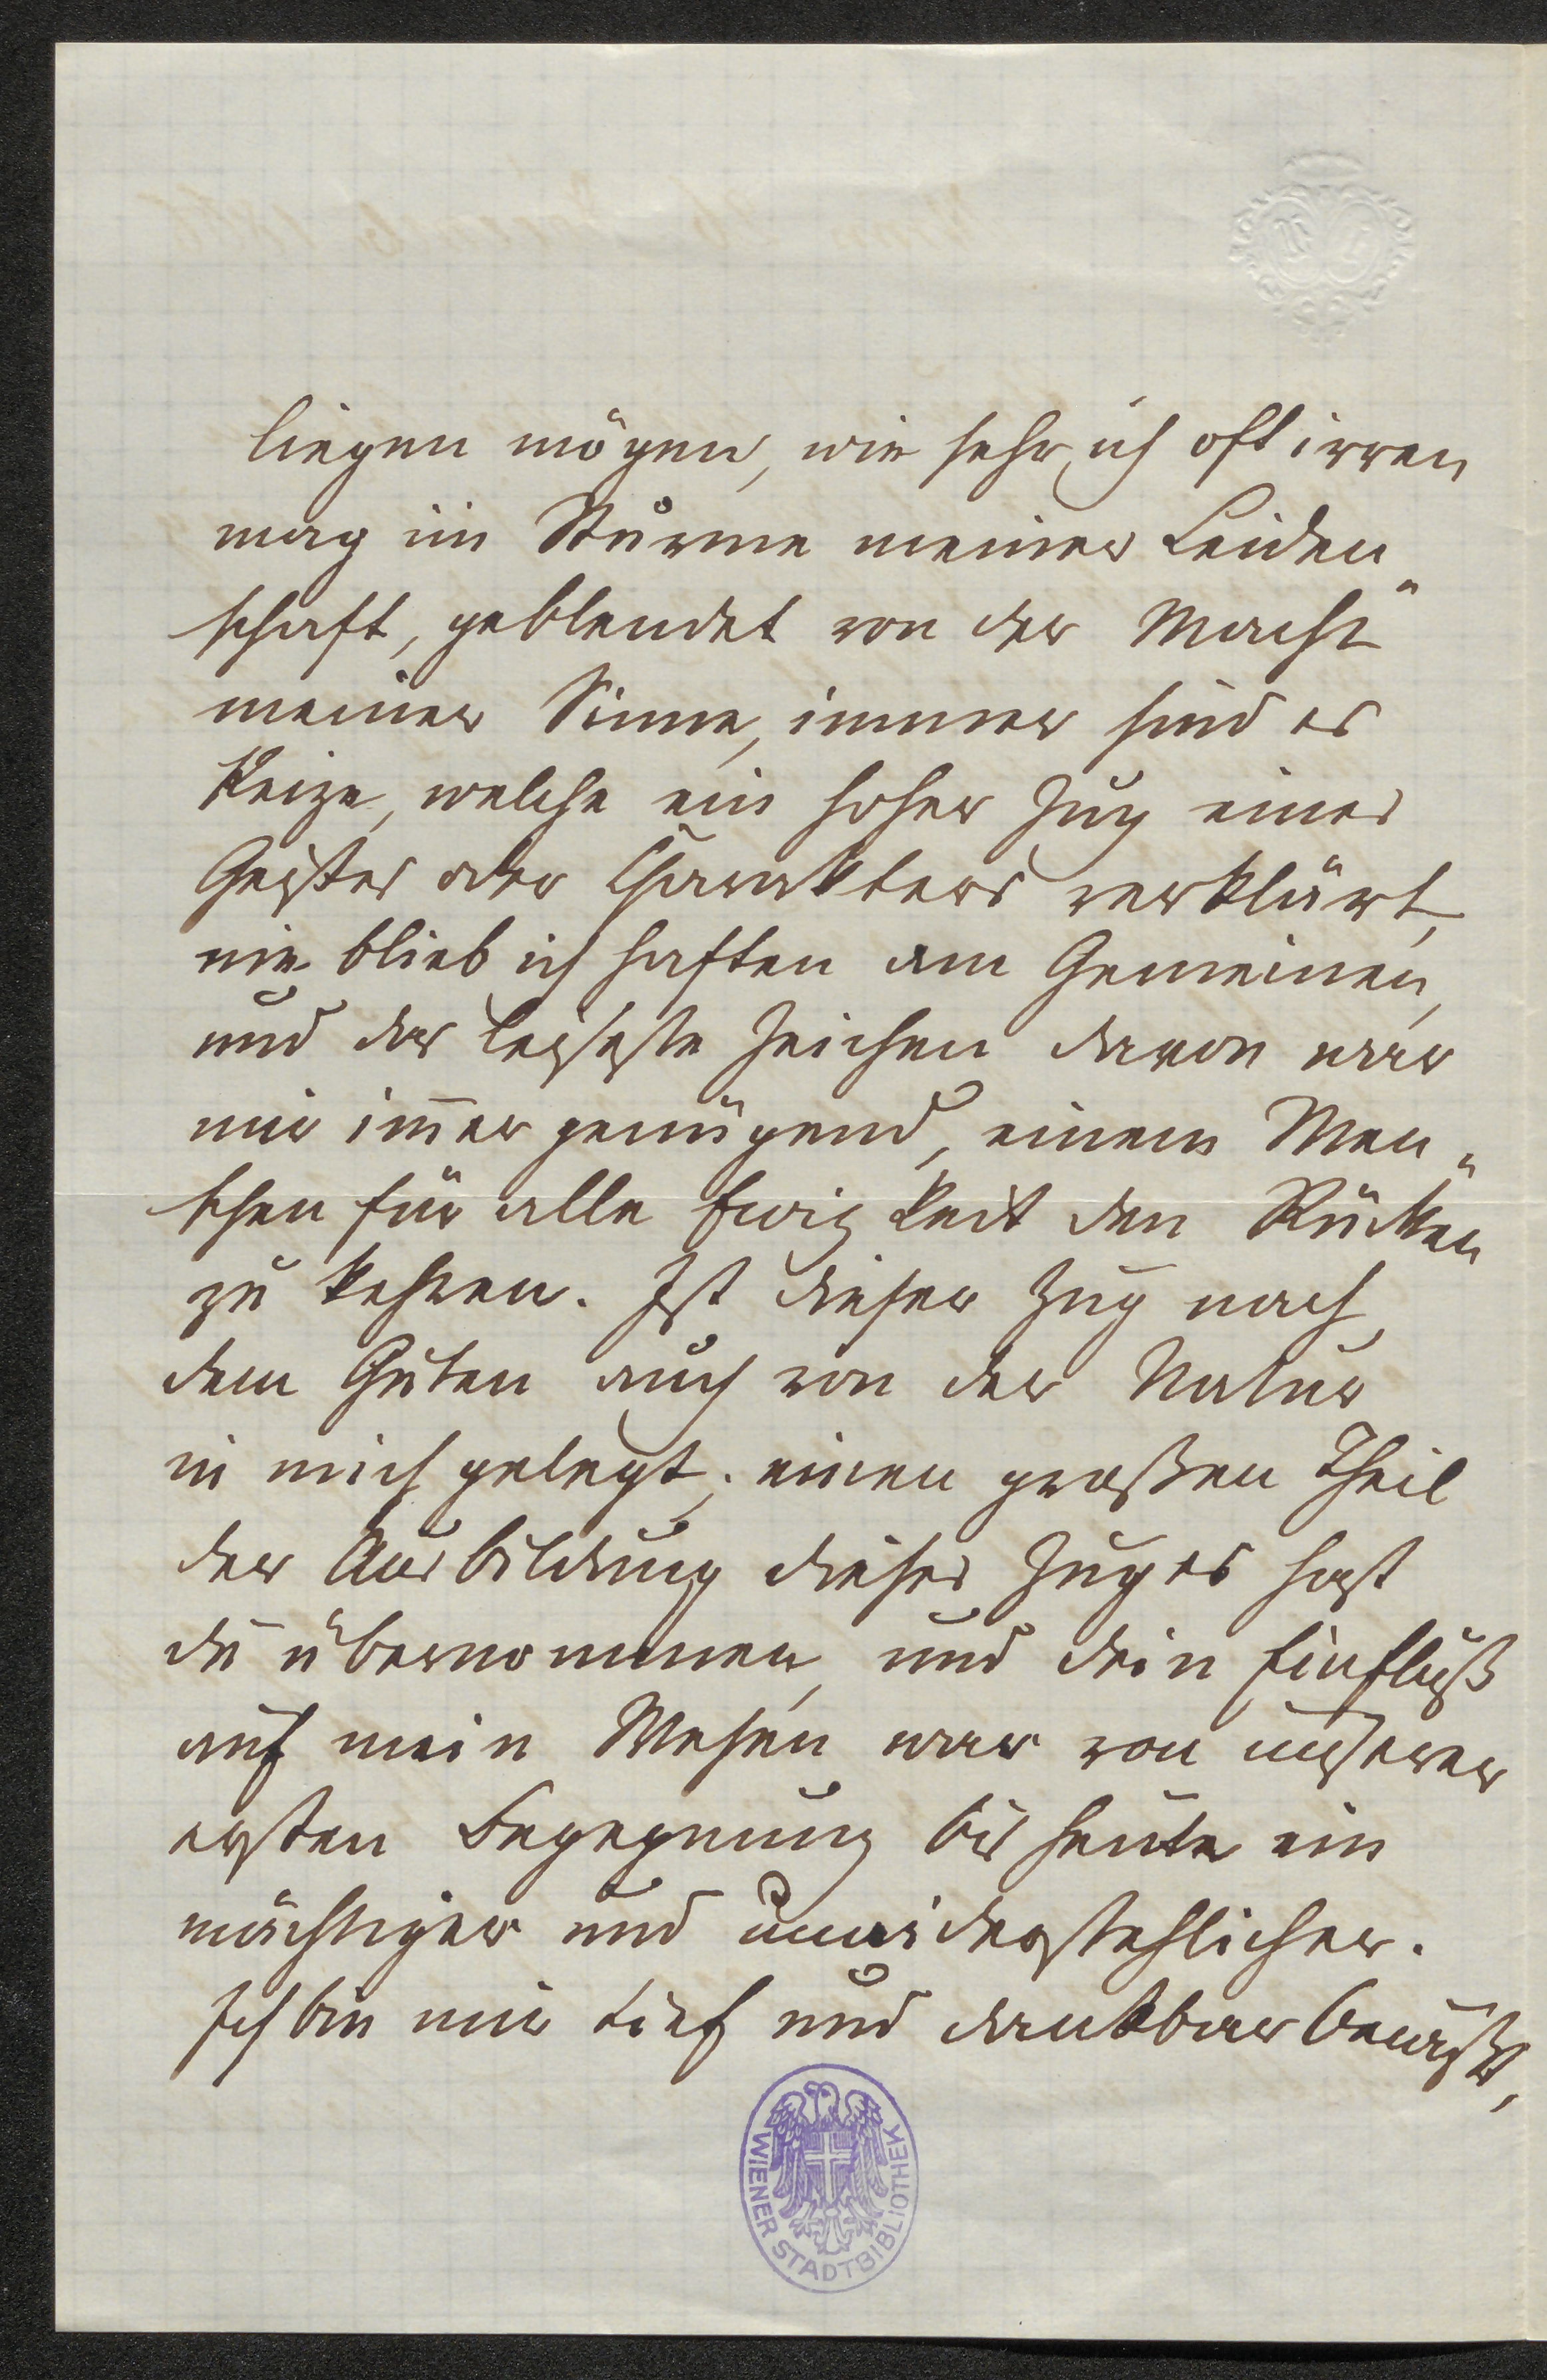 liegen mögen, wie sehr ich oft irren
mag im Sturme meiner Leiden„
schaft, geblendet von der Macht
meiner Sinne, immer sind es
Reize, welche ein hoher Zug eines
Geistes oder Charakters verklärt,
nie blieb ich haften am Gemeinen,
und das leiseste Zeichen davon war
mir im̄er genügend, einem Men„
schen für alle Ewigkeit den Rücken
zu kehren. Ist dieser Zug nach
dem Guten auch von der Natur
in mich gelegt; einen großen Theil
der Ausbildung dieses Zuges hast
du übernommen, und dein Einfluß
auf mein Wesen war von unserer
ersten Begegnung bis heute ein
mächtiger und unwiderstehlicher.
Ich bin mir tief und dankbar bewußt,
WIENER STADTBIBLIOTHEK